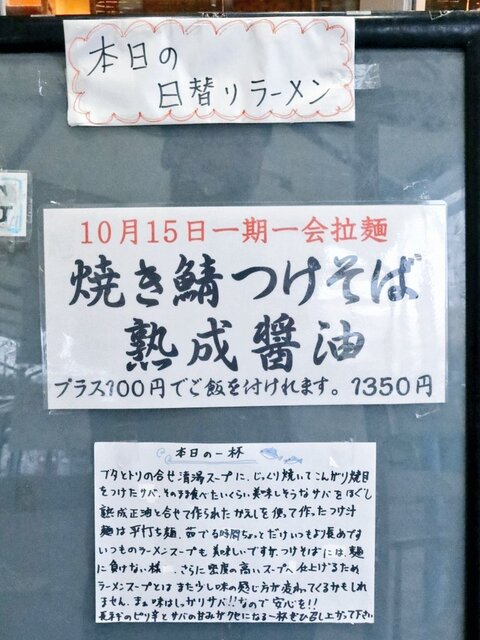 本日の
日替りラーメン
10月15日一期一会拉麺
焼き鯖つけそば
熟成醤油
プラス100円でご飯を付けれます。1350円
本日の一杯
ブタとトリの合せ清湯スープに、じっくり焼いてこんがり焼目
をつけたサバ、そのまま食べたいくらい美味しそうなサバをほぐし
熟成正油と合せて作られたかえしを使って作ったつけ汁
麺は平打ち麺、茹でる時間ちょっとだけいつもより長めです
いつものラーメンスープも美味しいですが、つけそばには、麺
に負けない様… さらに密度の高いスープへ仕上げるため
ラーメンスープとはまた少し味の感じ方が変わってくるかもしれ
ません。まぁ味はしっかりサバ!!なので安心を!!
長ネギのピリ辛とサバの甘みがクセになる一杯ぜひ召し上がって下さい